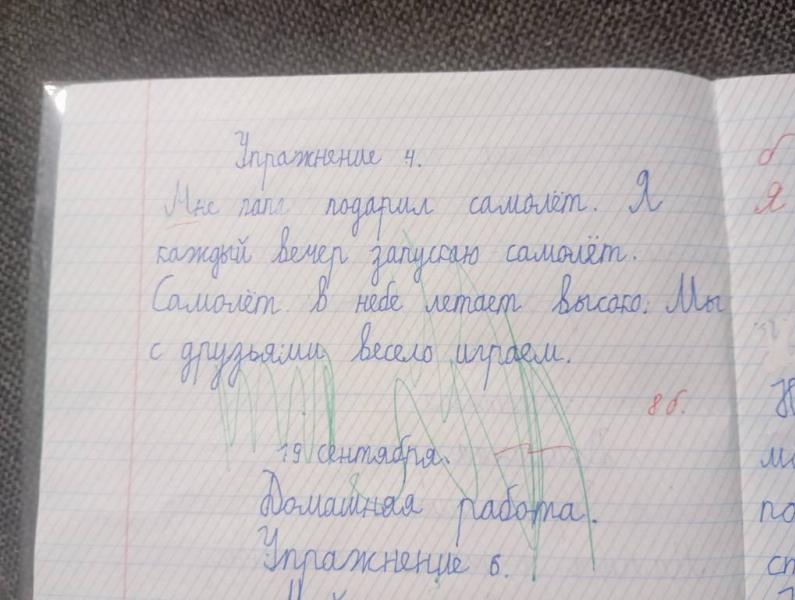 Упражнение 4.
Мне папа подарил самолёт. Я
каждый вечер запускаю самолёт.
Самолёт в небе летает высоко. Мы
с друзьями весело играем.
8 б.
19 сентября.
Домашняя работа.
Упражнение 6.
б
Я
Н
по
сп